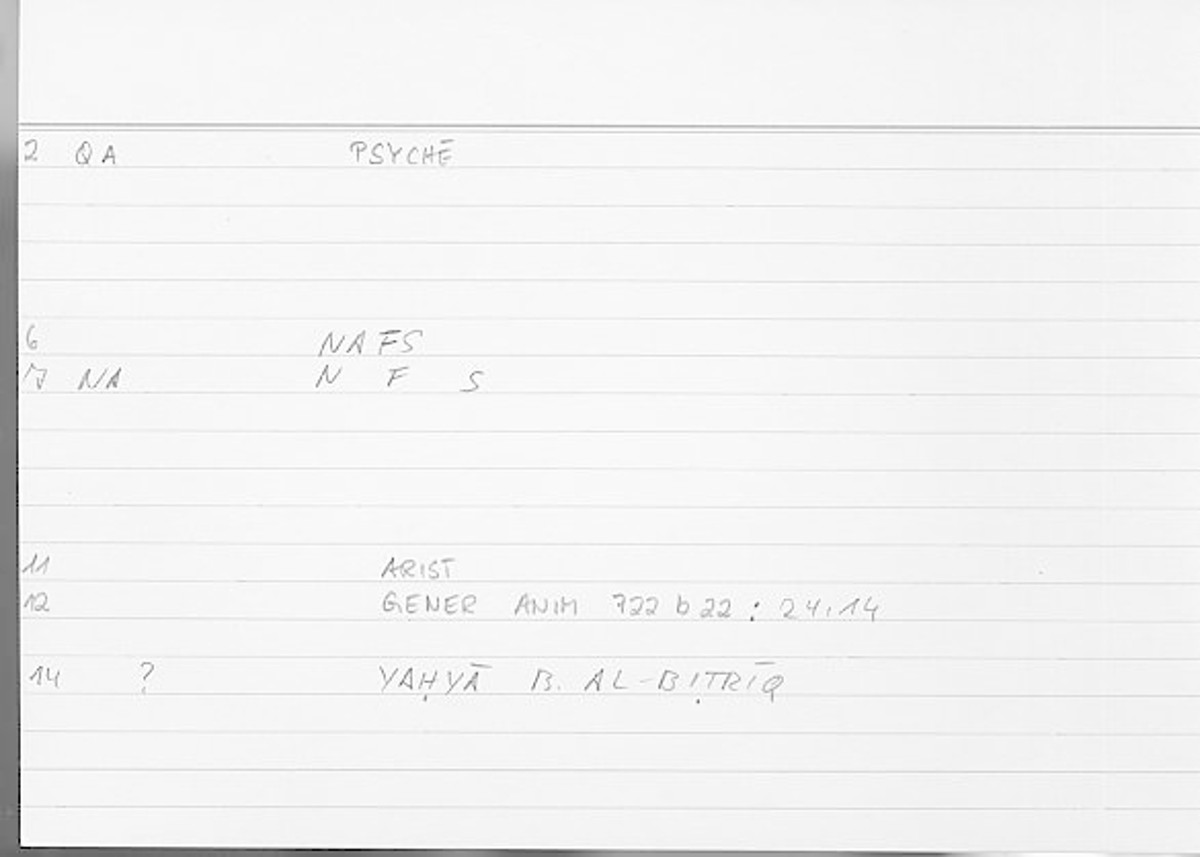 2 QA PSYCHĒ
6 NAFS
7 NA N F S
11 ARIST
12 GENER ANIM 722 b 22 : 24,14
14 ? YAḤYĀ B. AL-BIṬRĪQ